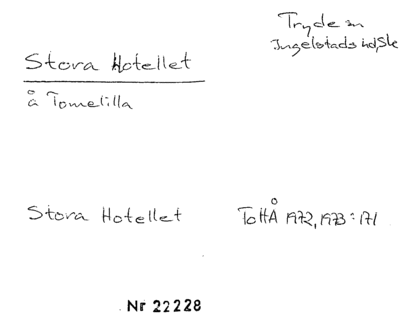 Tryde sn
Ingelstads hd, Sk
Stora Hotellet
å Tomelilla
Stora Hotellet
ToHÅ 1972, 1973: 171
Nr 22228